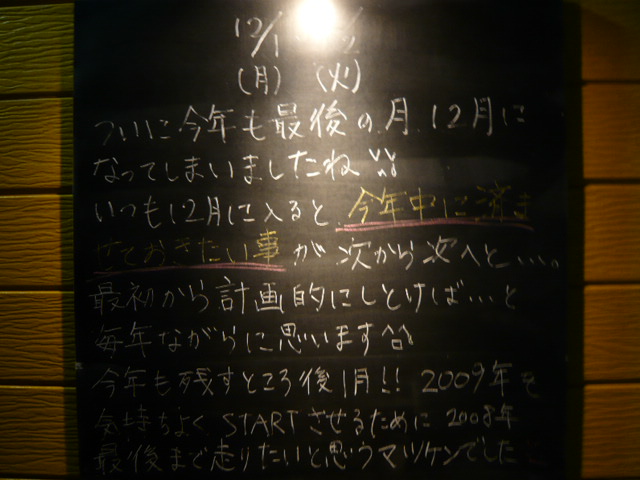 12/1 2
(月) (火)
ついに今年も最後の月、12月に
なってしまいましたね!!
いつも12月に入ると、今年中に済ま
せておきたい事が次から次へと・・・・。
最初から計画的にしとけば・・・と
毎年ながらに思います
今年も残すところ後1月!! 2009年を
気持ちよくSTARTさせるために2008年
最後まで走りたいと思うマツケンでした